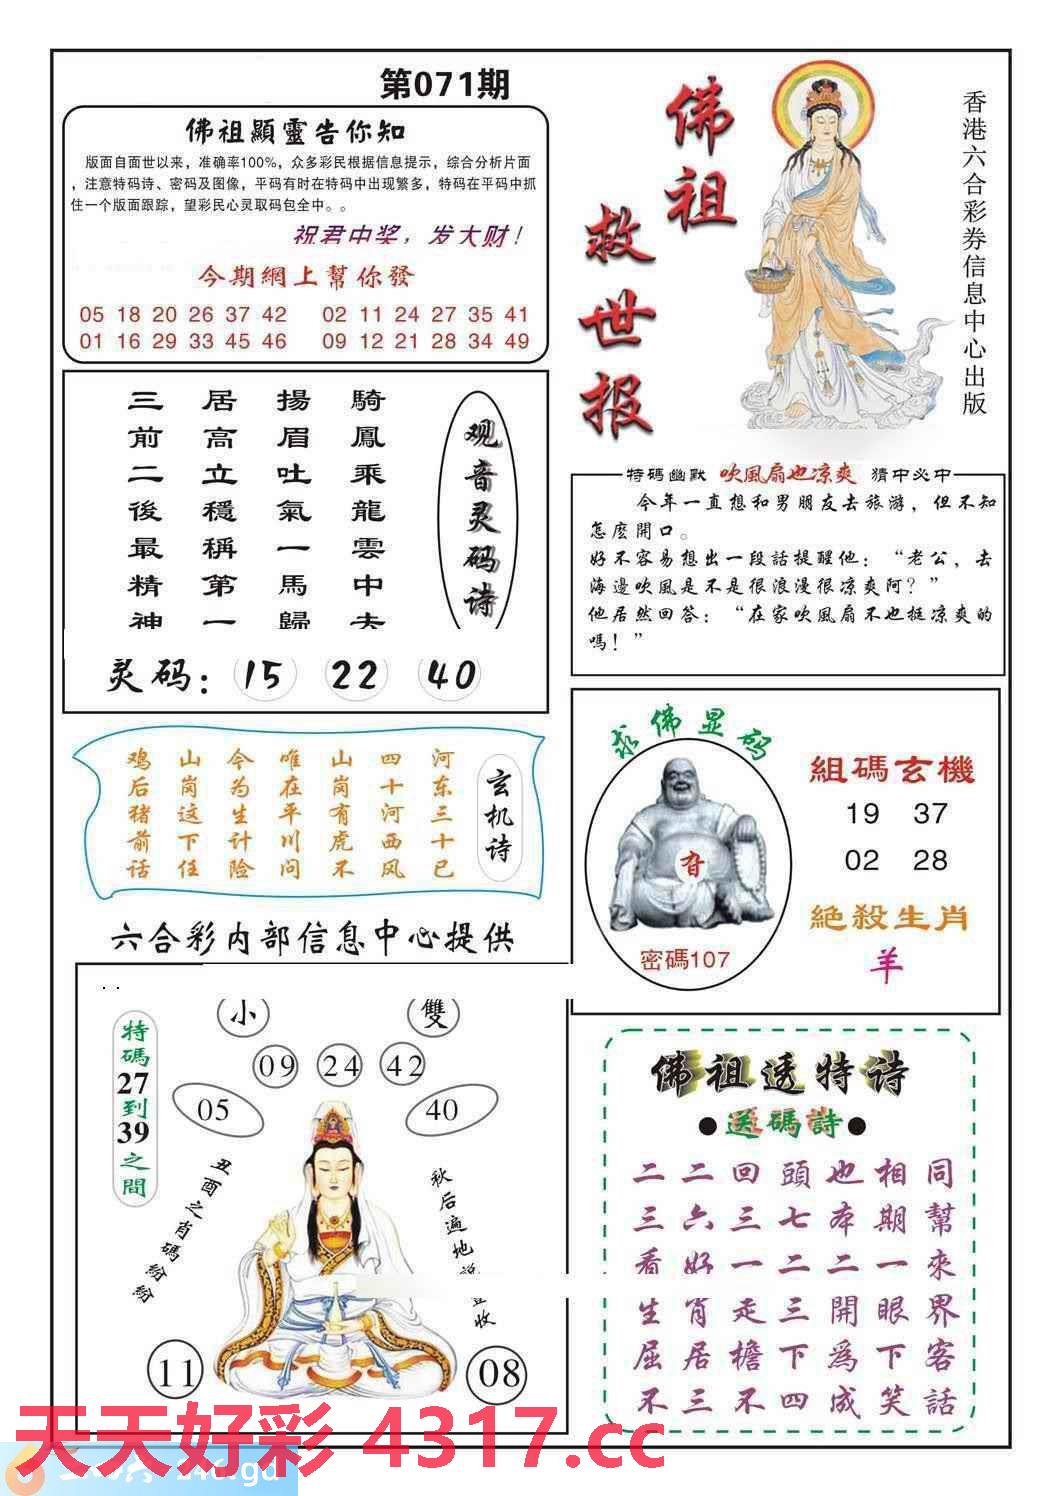 第071期
佛祖顯靈告你知
版面自面世以来，准确率100%，众多彩民根据信息提示，综合分析片面
，注意特码诗、密码及图像，平码有时在特码中出现繁多，特码在平码中抓
住一个版面跟踪，望彩民心灵取码包全中。。
祝君中奖，发大财！
今期網上幫你發
05 18 20 26 37 42 02 11 24 27 35 41
01 16 29 33 45 46 09 12 21 28 34 49
佛祖
救世报
香港六合彩券信息中心出版
观音灵码诗
騎鳳乘龍雲中夫
揚眉吐氣一馬歸
居高立穩稱第一
三前二後最精神
灵码：15 22 40
特碼幽默 吹風扇也凉爽 猜中必中
今年一直想和男朋友去旅游，但不知
怎麽開口。
好不容易想出一段話提醒他：“老公，去
海邊吹風是不是很浪漫很凉爽阿？”
他居然回答：“在家吹風扇不也挺凉爽的
嗎！”
玄机诗
河东三十已
四十河西风
山岗有虎不
唯在平川问
今为生计险
山岗这下任
鸡后猪前话
求佛显码
密碼107
組碼玄機
19 37
02 28
絕殺生肖
羊
六合彩内部信息中心提供
小 雙
09 24 42
05 40
特碼27到39之間
丑酉之肖碼紛紛
秋后遍地說豐收
11 08
佛祖透特诗
●送碼詩●
同幫來界客話
相期一眼下笑
也本二開為成
頭七二三下四
回三一走檐不
二六好肖居三
二三看生屈不
天天好彩 4317.cc
246.gd